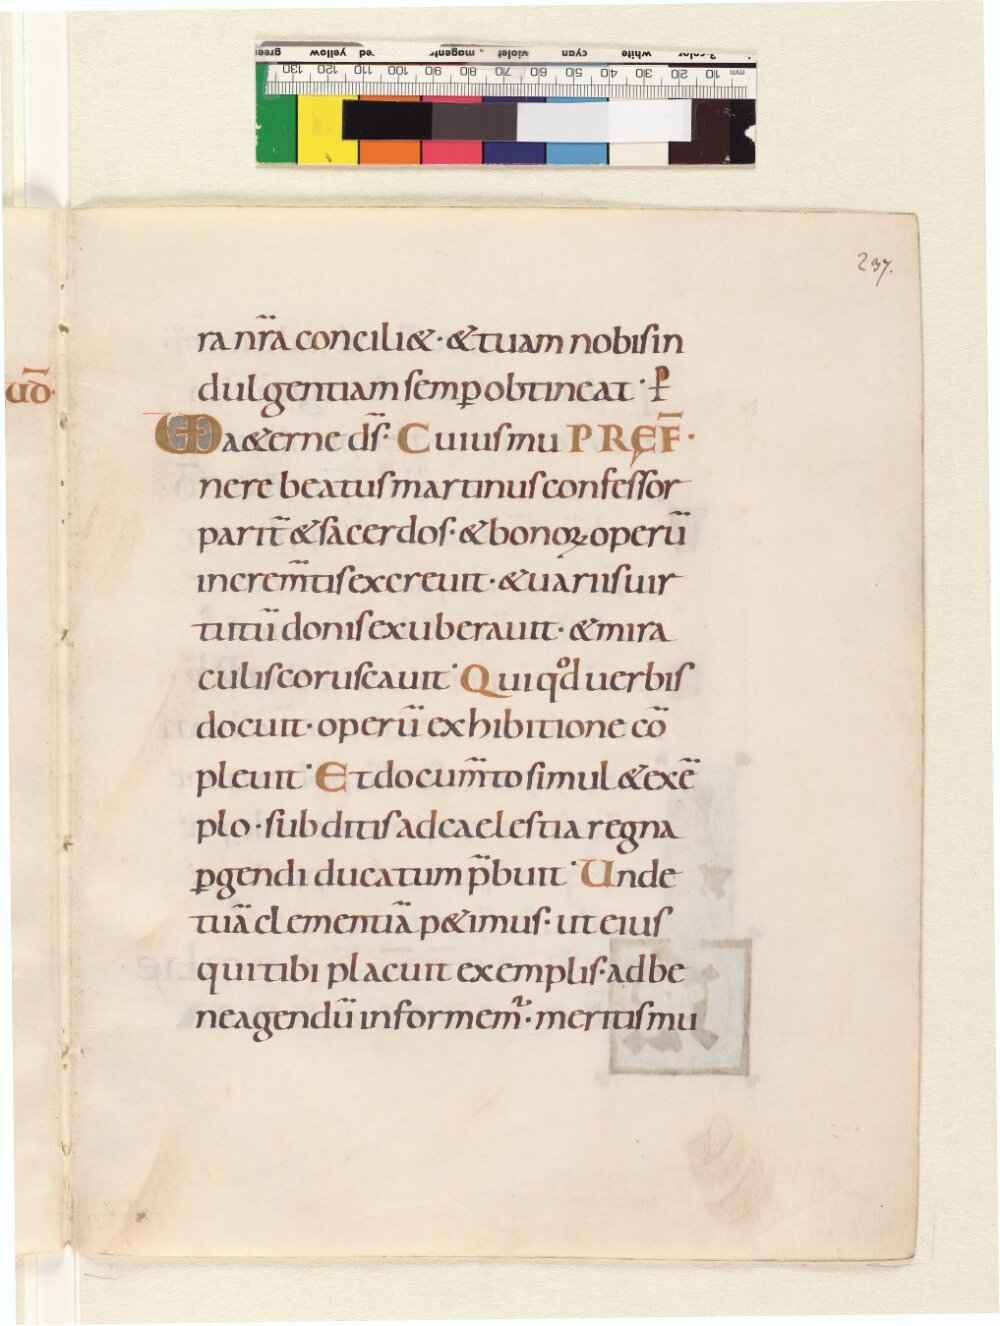 237.
ra nr̄a conciliet · & tuam nobis in
dulgentiam semꝑ obtineat · P̄
VD aeterne d̄s · Cuius mu PREF̄ ·
nere beatus martinus confessor
parit̄ & sacerdos · & bonoꝝ operū
increm̄tis excreuit · & uariis uir
tutū donis exuberauit · & mira
culis coruscauit · Qui qd uerbis
docuit · operū exhibitione cō
pleuit · Et docum̄to simul & exē
plo · subditis ad caelestia regna
ꝑgendi ducatum p̄buit · Unde
tuā clementiā p&imus · ut eius
qui tibi placuit exemplis · ad be
ne agendū informem̄ · meritis mu